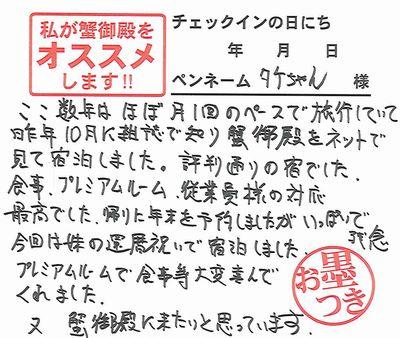 私が蟹御殿を
オススメ
します!!
チェックインの日にち
年 月 日
ペンネーム タケちゃん 様
ここ数年は ほぼ月1回のペースで旅行していて
昨年10月に雑誌で知り蟹御殿をネットで
見て宿泊しました。評判通りの宿でした。
食事、プレミアムルーム、従業員様の対応
最高でした、帰りに年末を予約しましたが いっぱいで
残念
今回は姉の還暦祝いで宿泊しました
プレミアムルームで食事等大変喜んで
くれました.
又 蟹御殿に来たいと思っています.
お墨
つき